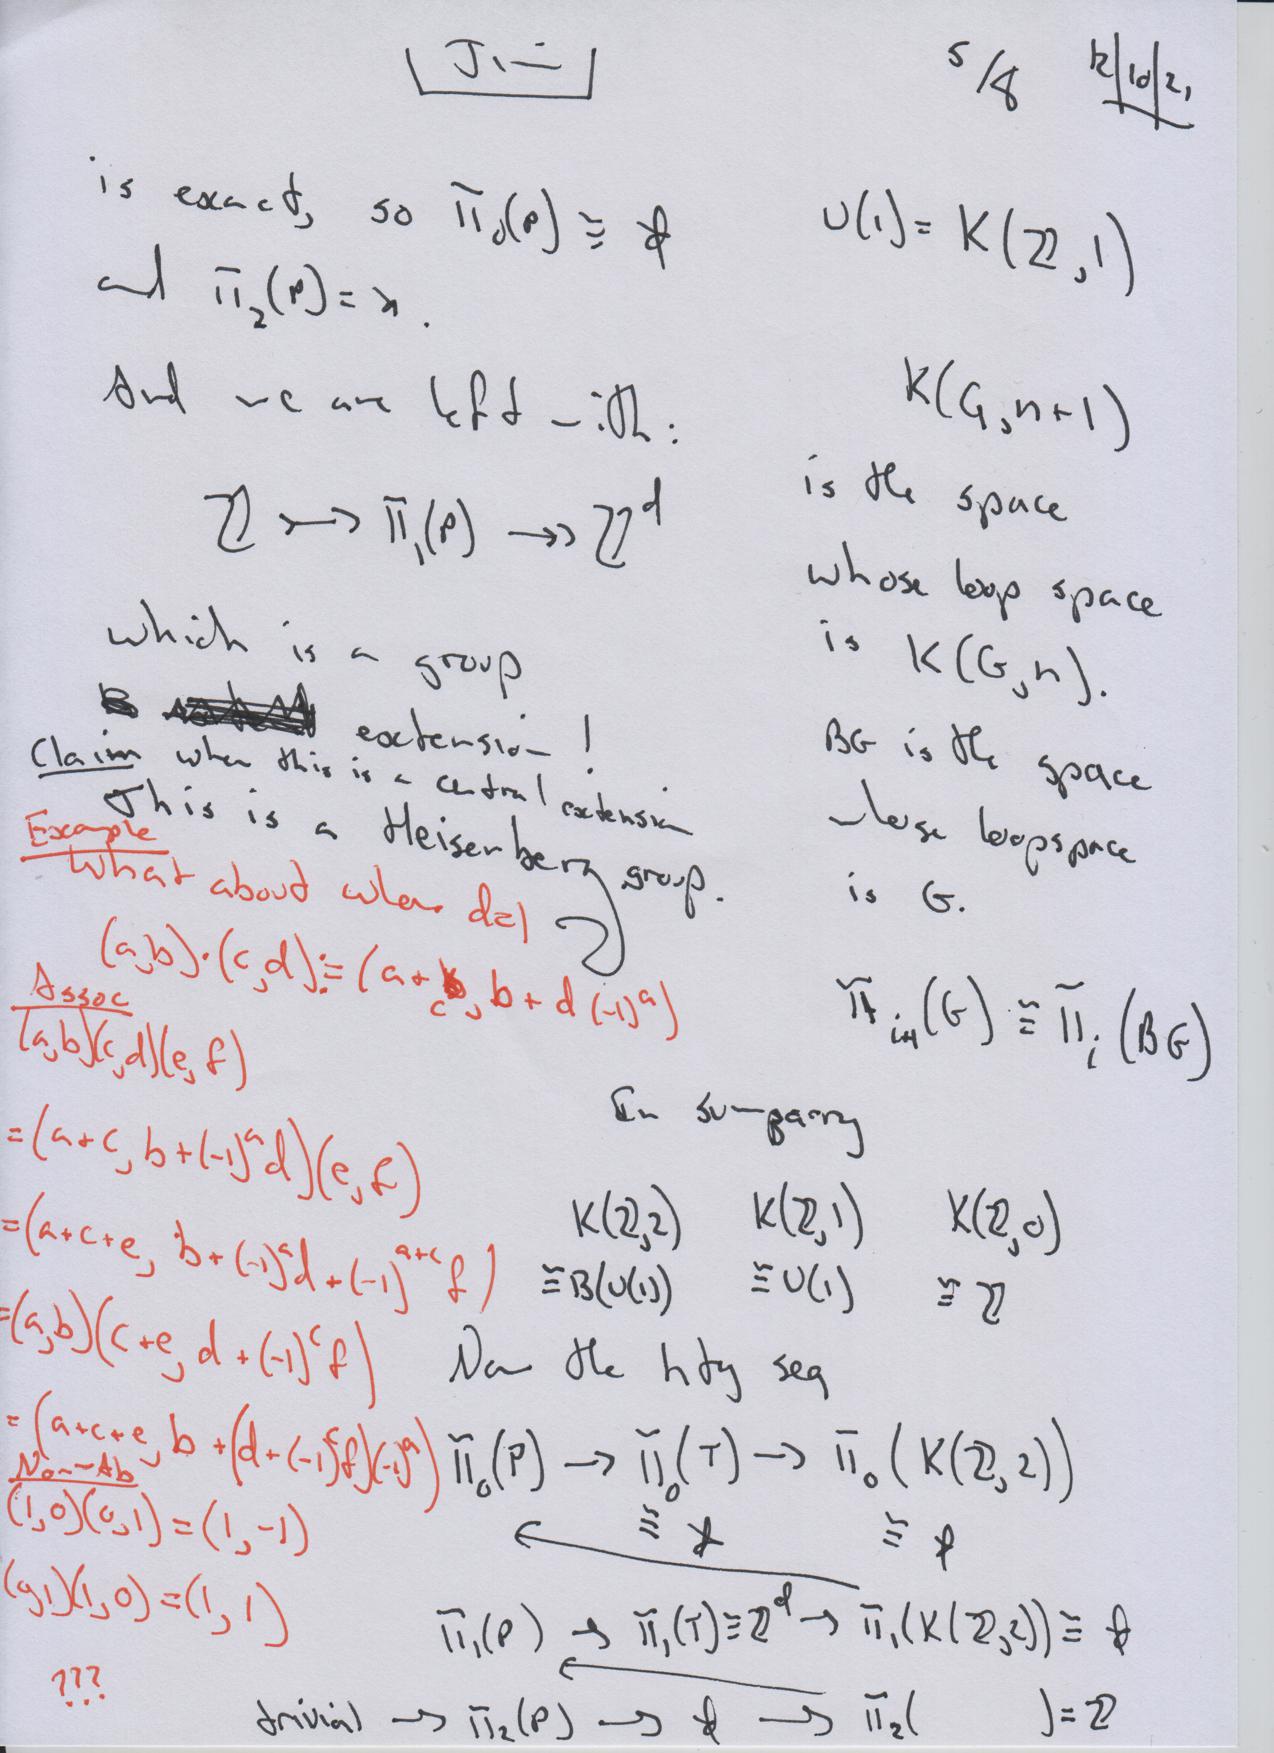 Jim
5/8 12/10/21
is exact, so π₀(P) ≅ *
and π₂(P) = *.
And we are left with:
ℤ ↣ π₁(P) ↠ ℤᵈ
which is a group
extension!
Claim when this is a central extension
This is a Heisenberg group.
Example
What about when d=1
(a,b)·(c,d) := (a+c, b+d(-1)ᵃ)
Assoc
(a,b)(c,d)(e,f)
=(a+c, b+(-1)ᵃd)(e,f)
=(a+c+e, b+(-1)ᵃd+(-1)ᵃ⁺ᶜf)
=(a,b)(c+e, d+(-1)ᶜf)
=(a+c+e, b+(d+(-1)ᶜf)(-1)ᵃ)
Non-Ab
(1,0)(0,1)=(1,-1)
(0,1)(1,0)=(1,1)
???
U(1)=K(ℤ,1)
K(G,n+1)
is the space
whose loop space
is K(G,n).
BG is the space
whose loopspace
is G.
(G) ≅ πᵢ(BG)
In summary
K(ℤ,2) K(ℤ,1) K(ℤ,0)
≅B(U(1)) ≅U(1) ≅ℤ
Now the hty seq
π₀(P) → π₀(T) → π₀(K(ℤ,2))
≅ * ≅ *
π₁(P) → π₁(T)≅ℤᵈ → π₁(K(ℤ,2)) ≅ *
trivial → π₂(P) → * → π₂( )=ℤ